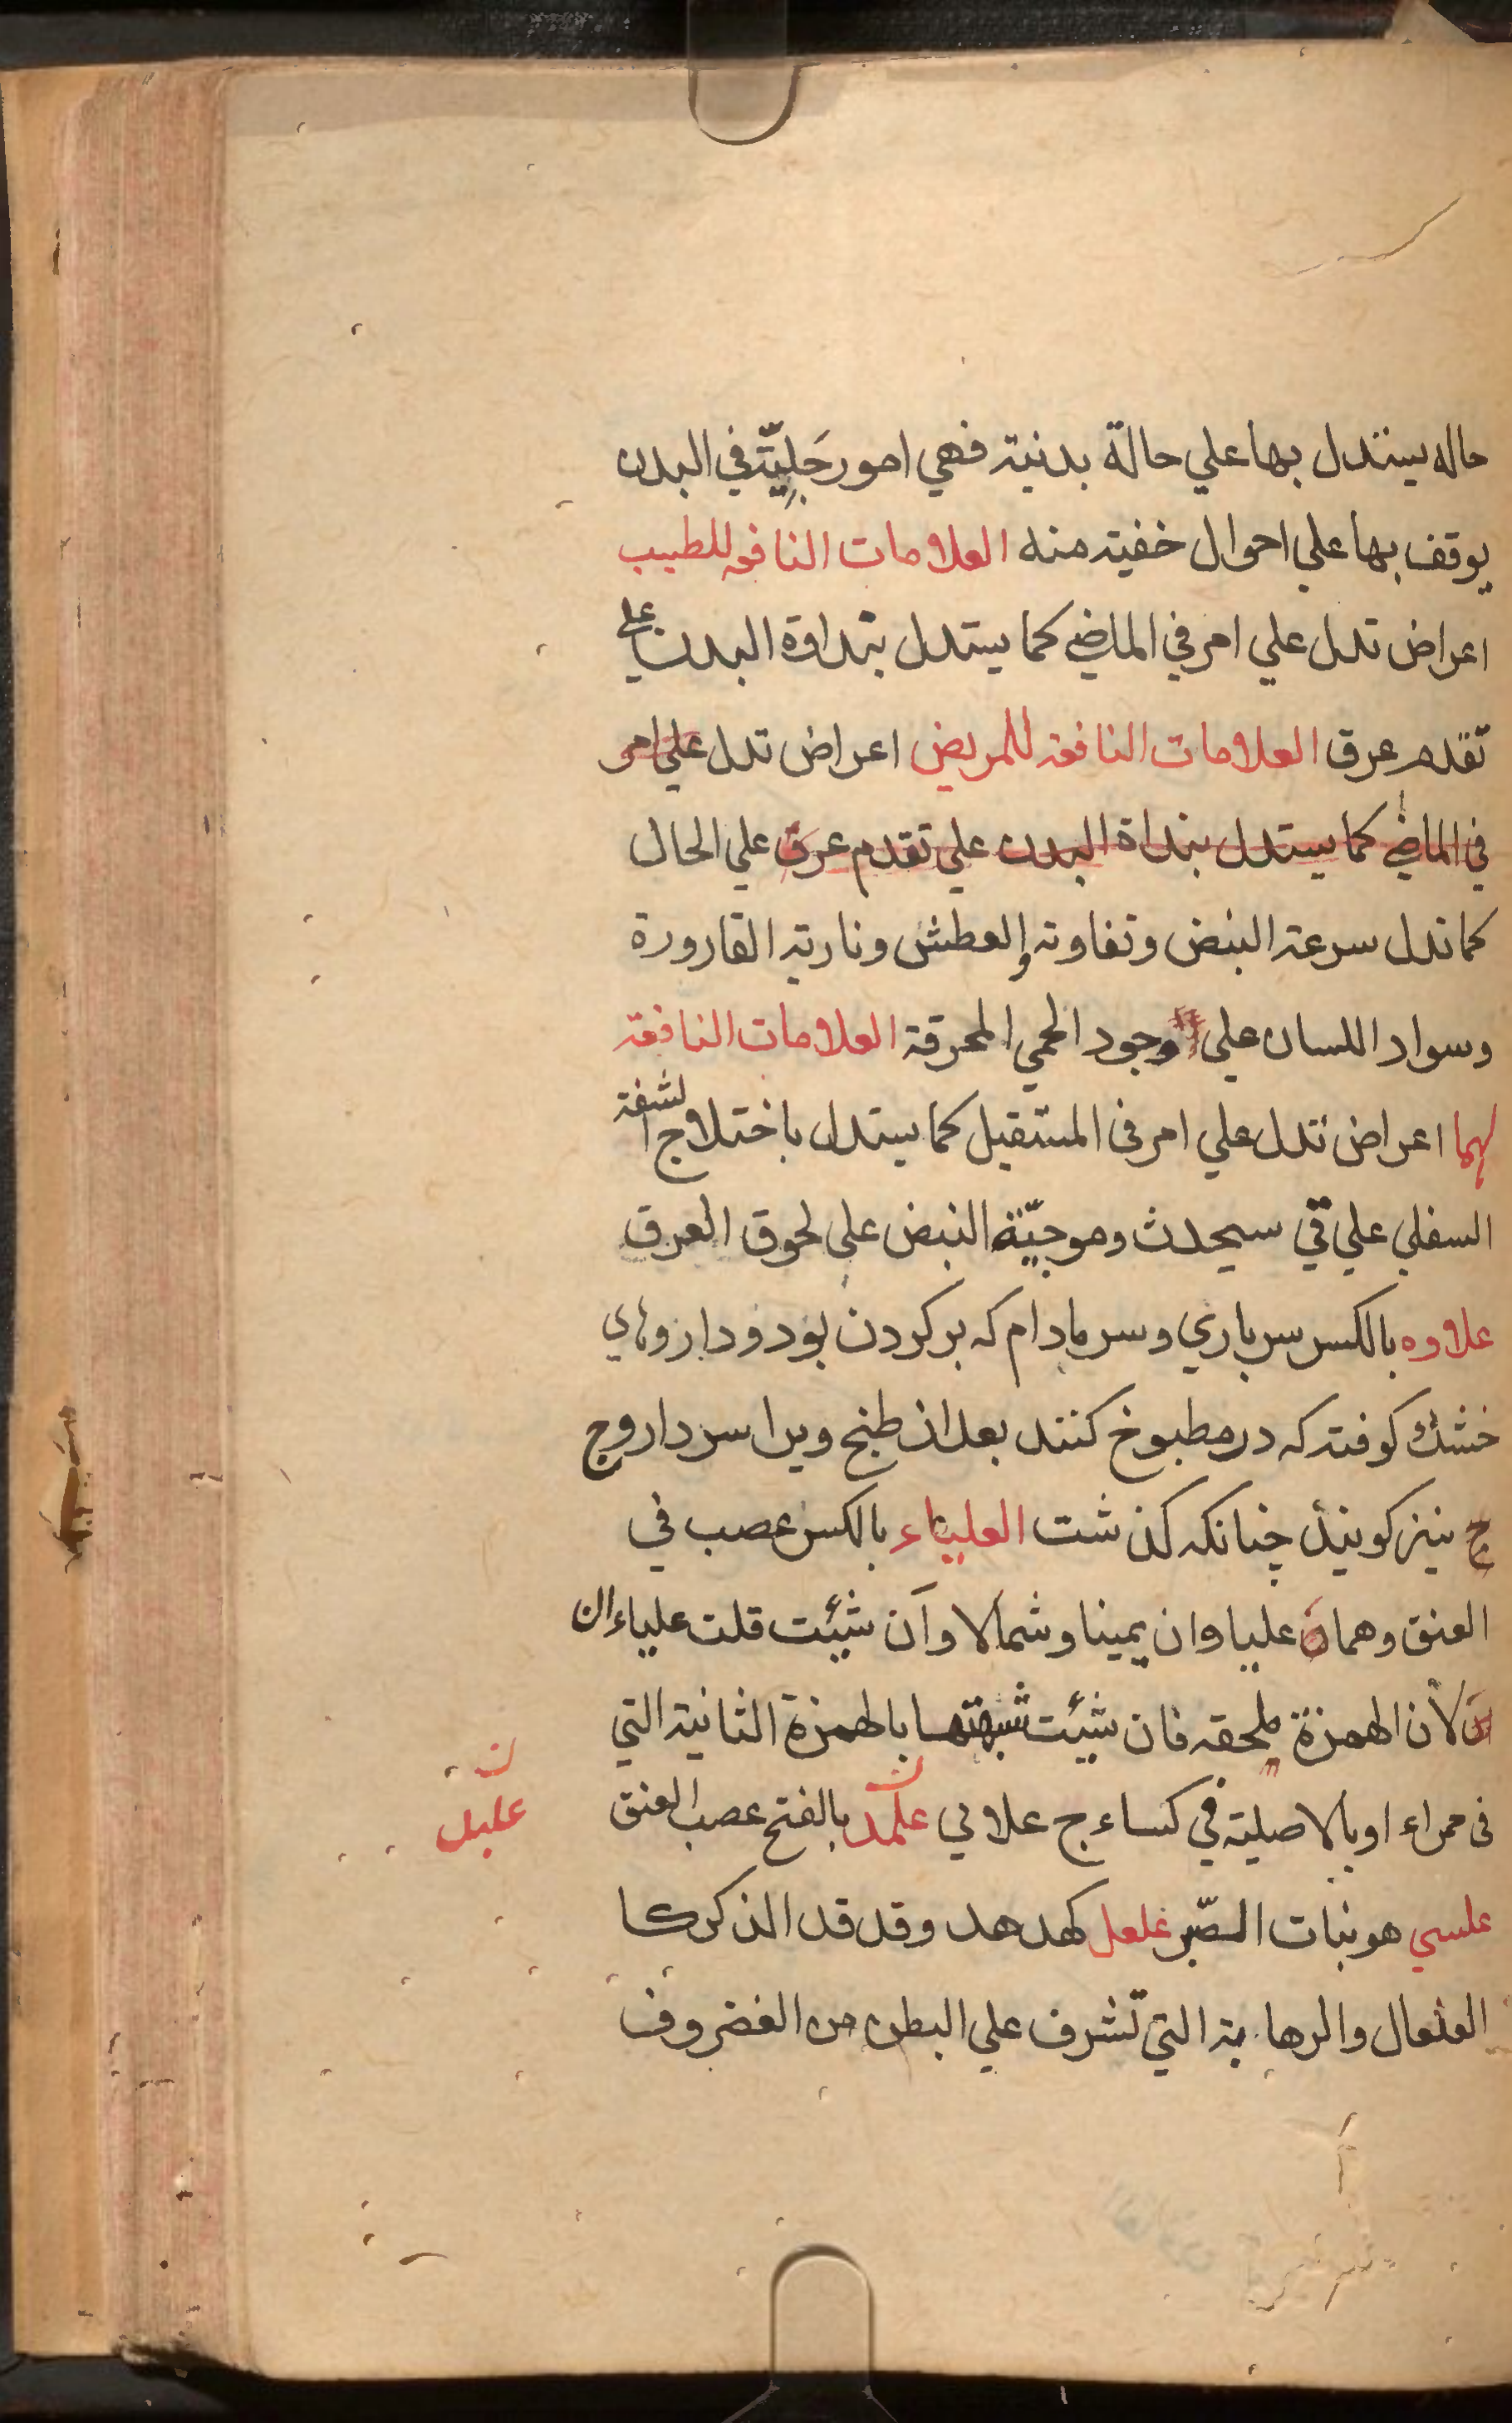 حاله يستدل بها علي حالة بدنية فهي امور جَلِيّة في البدن
يوقف بها علي احوال خفية منه العلامات النافعه للطبيب
اعراض تدل علي امر في الماضي كما يستدل بنداوة البدن علي
تقدم عرق العلامات النافعة للمريض اعراض تدل علي امر
في الماضي كما يستدل بنداة البدن علي تقدم عرق علي الحال
كما تدل سرعة النبض وتفاوته والعطش ونارية القارورة
وسواد اللسان علي وجود الحمي المحرقة العلامات النافعة
لهما اعراض تدل علي امر في المستقبل كما يستدل باختلاج الشفة
السفلي علي قي سيحدث وموجيّة النبض علي لحوق العرق
علاوه بالكسر سرباري وسر بادام كه بركردن بود و داروهاي
خشك كوفته كه در مطبوخ كنند بعد از طبخ ويرا سرداروج
ج نيز كويند چنانكه كذشت العلياء بالكسر عصب في
العنق وهما علياوان يمينا وشمالا وآن شيئت قلت علياءان
لأن الهمزة ملحقه فان شيئت شبهتها بالهمزة الثانية التي
في حمراء او بالاصلية في كساء ج علابي علكد بالفتح عصب العنق
ن
عليل
علسي هو نبات الصّبر علعل كهدهد وقد قد الذكر كا
العلعال والرهابة التي تشرف علي البطن من الغضروف